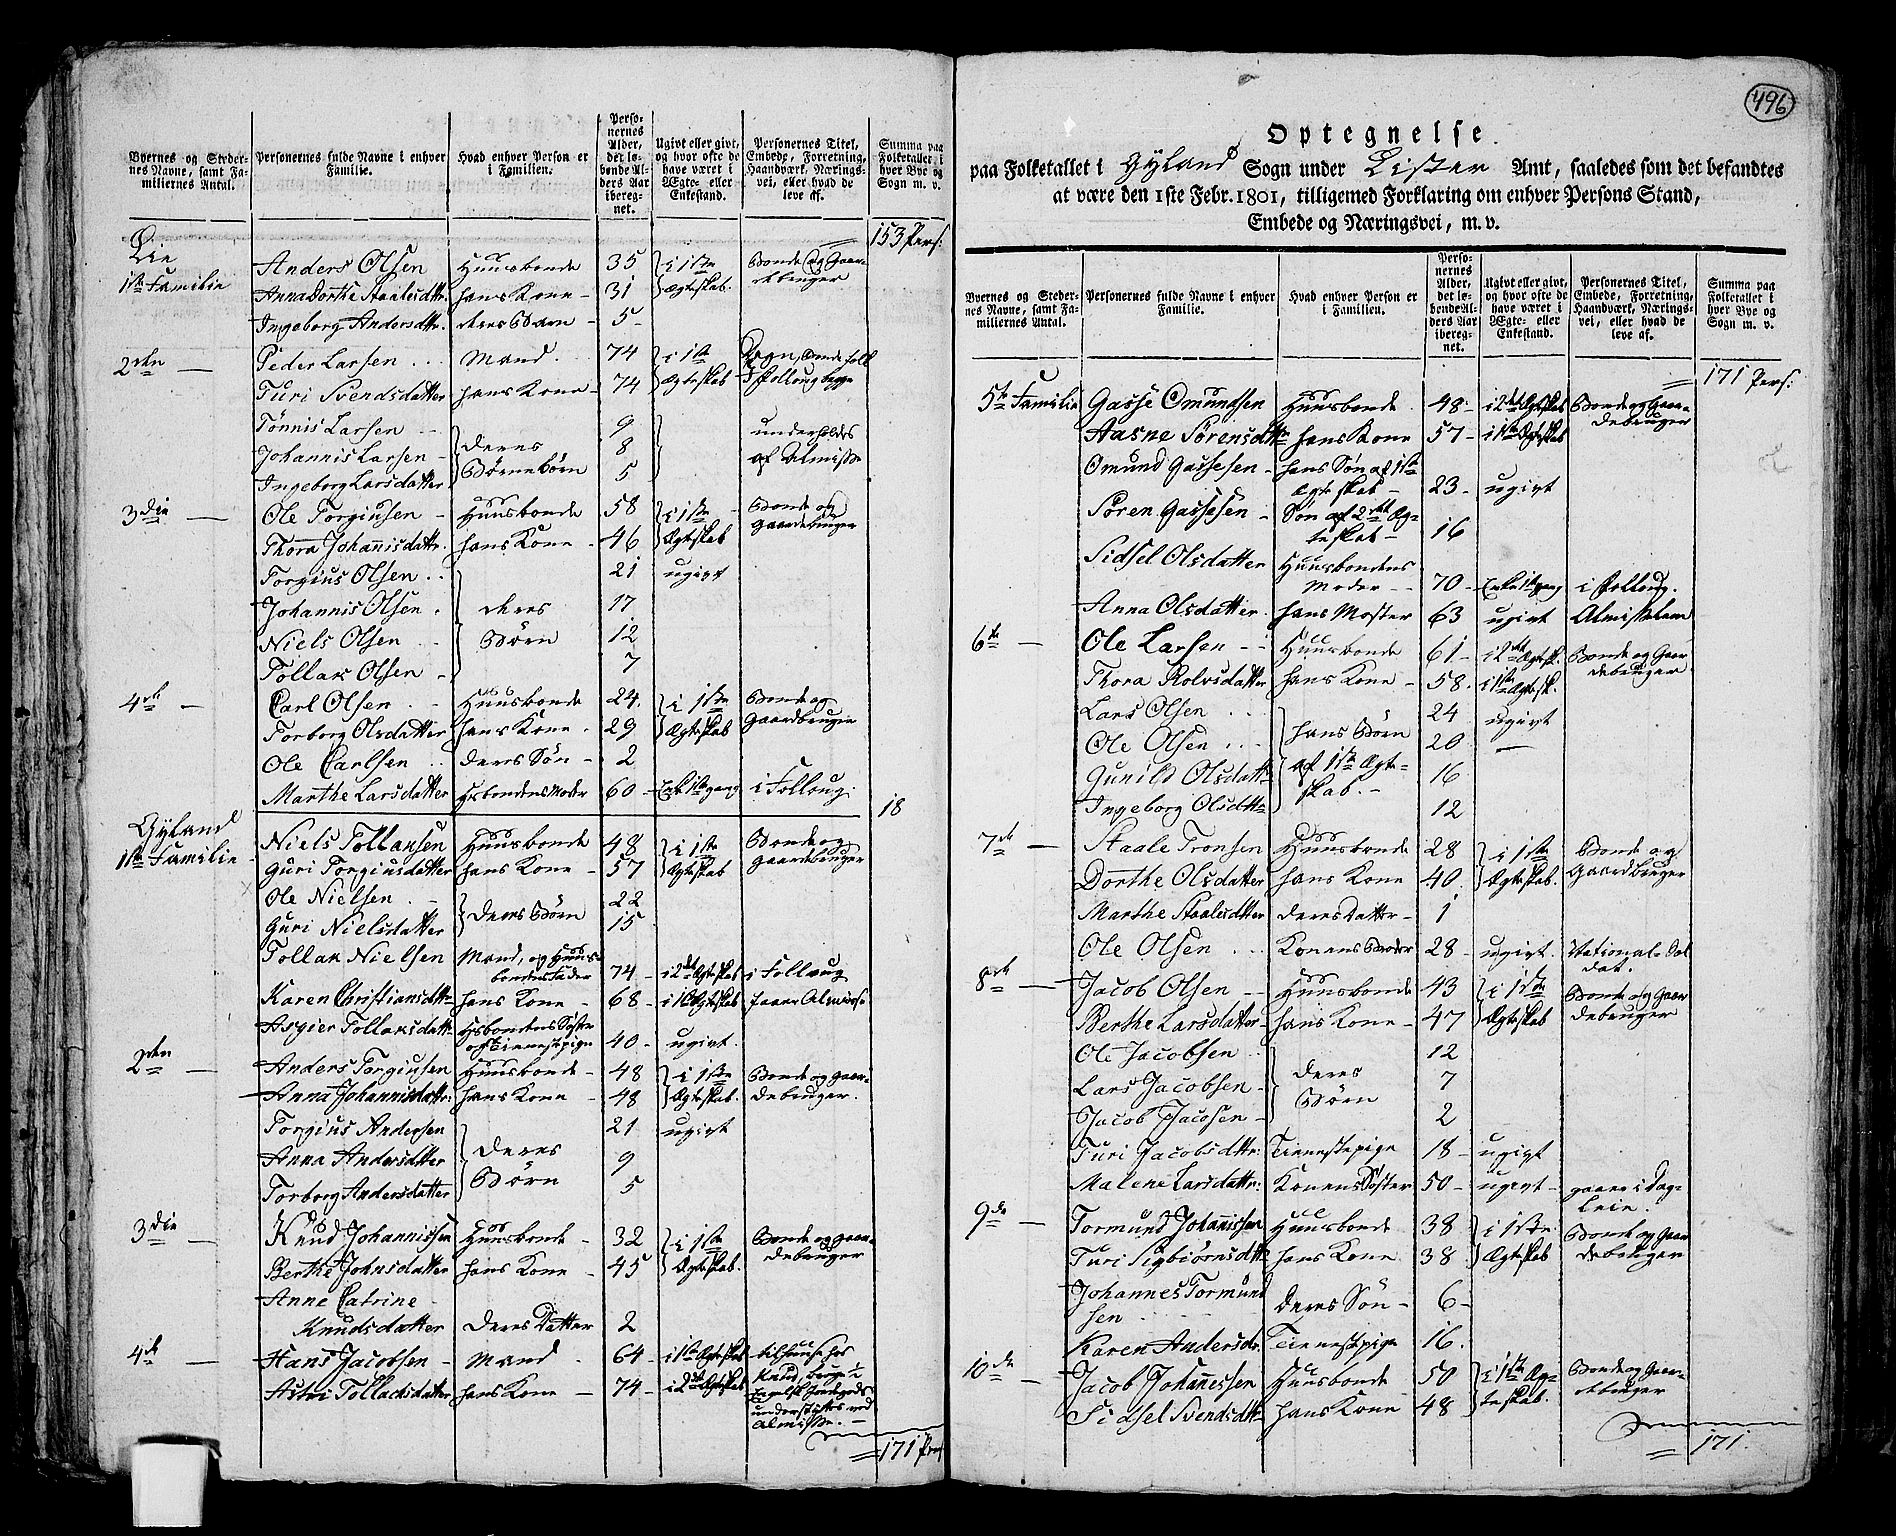 Byernes og Steder-
nes Navne, samt Fa-
miliernes Antal.
Personernes fulde Navne i enhver
Familie.
Hvad enhver Person er
i Familien.
Perso-
nernes
Alder,
det lø-
bende Al-
ders Aar
iberegnet.
Ugivt eller givt,
og hvor ofte de
have været i
Ægte- eller
Enkestand.
Personernes Titel,
Embede, Forretning,
Haandværk, Nærings-
vei, eller hvad de
leve af.
Summa paa
Folketallet i
hver Bye og
Sogn m. v.
153 Pers:
Øie
1ste Familie Anders Olsen Huusbonde 35 i 1ste Bonde og Gaar-
Anna Dorthe Staalesdttr. hans Kone 31 Ægteskab. debruger
Ingeborg Andersdttr. deres Barn 5
2den Peder Larsen Mand. 74 i 1ste
Turi Svendsdatter hans Kone 74 Ægteskab
Tönnis Larsen 9 underholdes
Johannis Larsen deres 8 af Almisse
Ingeborg Larsdatter Börnebörn 5
3die Ole Torgiusen Huusbonde 58 i 1ste Bonde og
Thora Johannisdattr. hans Kone 46 Ægteskab Gaardbruger
Torgius Olsen 21 ugivt
Johannis Olsen deres 17
Niels Olsen Börn 12
Tollak Olsen 7
4de Carl Olsen Huusbonde 24 i 1ste Bonde og
Torborg Olsdatter hans Kone 29 Ægteskab Gaardbruger
Ole Carlsen deres Sön 2
Marthe Larsdatter Hsbondens Moder 60 Enke 1ste gang i Folloug.
18
Gyland
1ste Familie Niels Tollaksen Huusbonde 48 i 1ste Bonde og
Guri Torgiusdatter hans Kone 57 Ægteskab gaardbruger
Ole Nielsen 22
Guri Nielsdatter deres Börn 15
Tollak Nielsen Mand, og Huus-
bondens fader 74 i 2det Ægteskab i Folloug
Karen Christiansdttr hans Kone 68 i 1ste Ægteskab faaer Almisse
Asgier Tollaksdattr Hsbondens Söster
og tienestepige 40 ugivt.
2den Anders Torgiusen Huusbonde 48 i 1ste Bonde og gaar-
Anna Johannisdattr: hans Kone 48 Ægteskab. debruger.
Torgius Andersen 21 ugivt
Anna Andersdatter deres 9
Torborg Andersdatter Börn 5
3die Knud Johannissen Huusbonde 32 i 1ste Bonde og gaar-
Berthe Johnsdatter hans Kone 45 Ægteskab. debruger
Anne Catrine
Knudsdatter deres Datter 2
4de Hans Jacobsen Mand 64 i 1ste Ægteskab tilhuuse hos
Astri Tollacksdatter hans Kone 74 i 2det Ægteskab Knud,
understöttes ved
Almisse.
171 Pers
496
Optegnelse
paa Folketallet i Gyland Sogn under Lister Amt, saaledes som det befandtes
at være den 1ste Febr. 1801, tilligemed Forklaring om enhver Persons Stand,
Embede og Næringsvei, m. v.
Byernes og Steder-
nes Navne, samt Fa-
miliernes Antal.
Personernes fulde Navne i enhver
Familie.
Hvad enhver Person er
i Familien.
Perso-
nernes
Alder,
det lø-
bende Al-
ders Aar
iberegnet.
Ugivt eller givt,
og hvor ofte de
have været i
Ægte- eller
Enkestand.
Personernes Titel,
Embede, Forretning,
Haandværk, Nærings-
vei, eller hvad de
leve af.
Summa paa
Folketallet i
hver Bye og
Sogn m. v.
171 Pers:
5te Familie Gasse Omundsen Huusbonde 48 i 2det Ægteskab Bonde og Gaar-
debruger
Aasne Sörensdttr hans Kone 57 i 1ste Ægteskab
Omund Gassesen hans Sön af 1ste
Ægteskab 23 ugivt
Sören Gassesen Sön af 2det Æg-
teskab 16
Sidsel Olsdatter Huusbondens
Moder 70 Enke 1ste gang i Folloug.
Anna Olsdatter hans Moster 63 ugivt Almisselem
6te Ole Larsen Huusbonde 61 i 2det Ægtesk. Bonde og Gaar
Thora Rolvsdatter hans Kone 58 i 1ste Ægtesk. debruger
Lars Olsen 24 ugivt
Ole Olsen hans Börn 20
Gunild Olsdattr af 1ste Ægte- 16
Ingeborg Olsdttr skab. 12
7de Staale Tronsen Huusbonde 28 i 1ste Bonde og
Dorthe Olsdatter hans Kone 40 Ægteskab. Gaardbruger
Marthe Staalesdtter deres Datter 1
Ole Olsen Konens Broder 28 ugivt. National-Sol
dat.
8de Jacob Olsen Huusbonde 43 i 1ste Bonde og Gaar
Berthe Larsdatter hans Kone 47 Ægteskab debruger
Ole Jacobsen 12
Lars Jacobsen deres 7
Jacob Jacosen Börn 2
Turi Jacobsdttr: Tienestepige 18 ugivt
Malene Larsdattr: Konens Söster 50 ugivt gaaer i Dag-
leie.
9de Tormund Johannissen Huusbonde 38 i 1ste Bonde og Gaar
Turi Sigbiörnsdttr hans Kone 38 Ægteskab debruger
Johannes Tormund
sen deres Sön 6
Karen Andersdr. Tienestepige 16.
10de Jacob Johannessen Huusbonde 50 i 1ste Æg- Bonde og Gaar-
Sidsel Svendsdttr hans Kone 48 teskab. debruger
171.